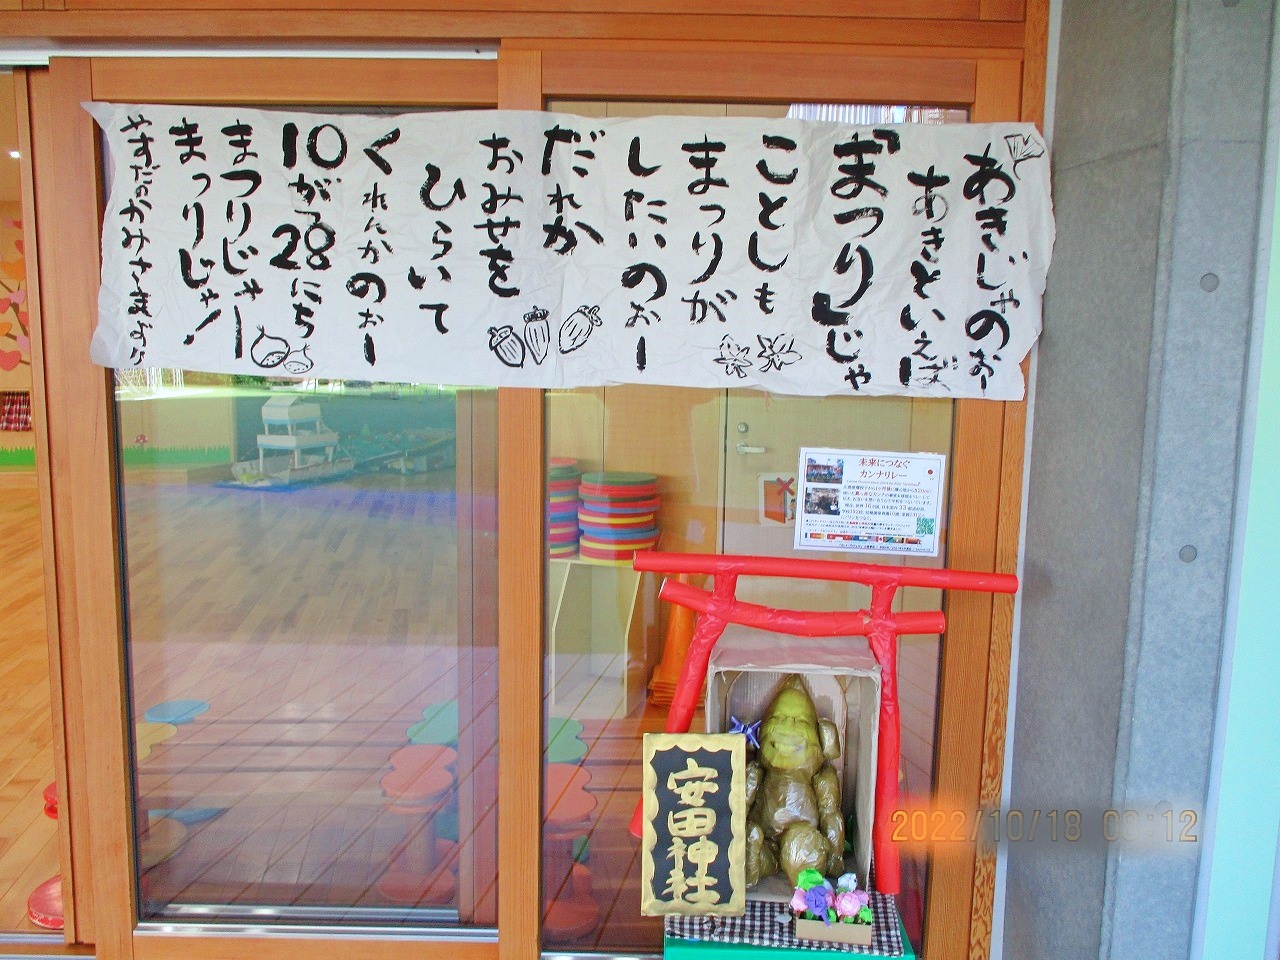 あきじゃのぉー
あきといえば
『まつり』じゃ
ことしも
まつりが
したいのぉー
だれか
おみせを
ひらいて
くれんかのぉー
10がつ28にち
まつりじゃー
まつりじゃ！
やすだのかみさまより
未来につなぐ
カンナリレー
安田神社
2022/10/18